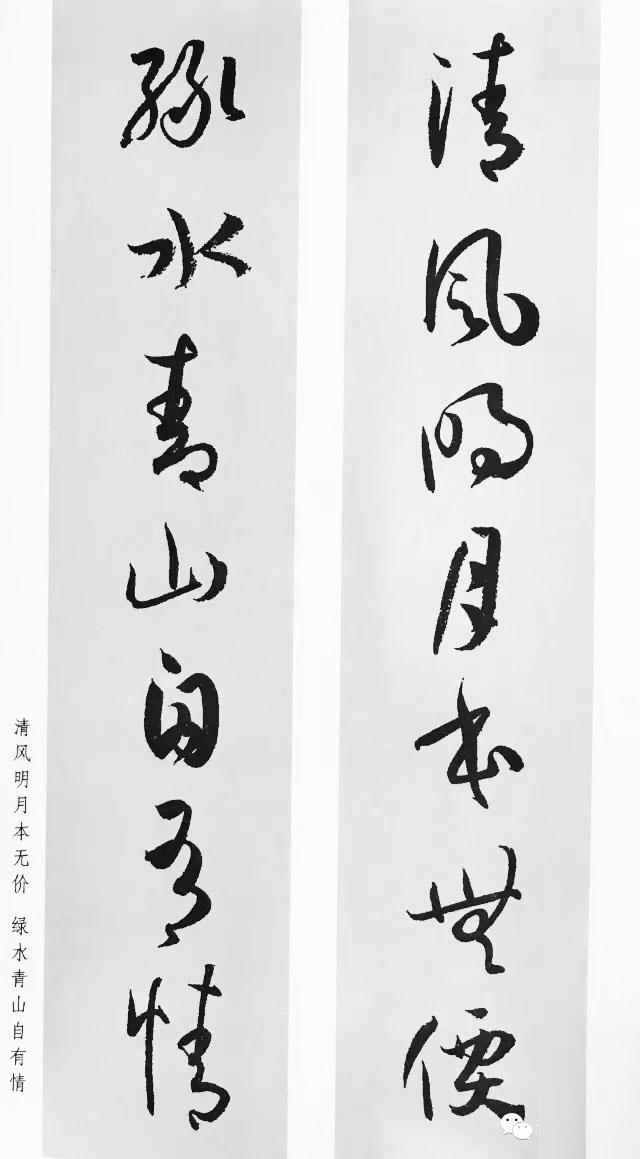 清风明月本無價
綠水青山自有情
清风明月本无价 绿水青山自有情